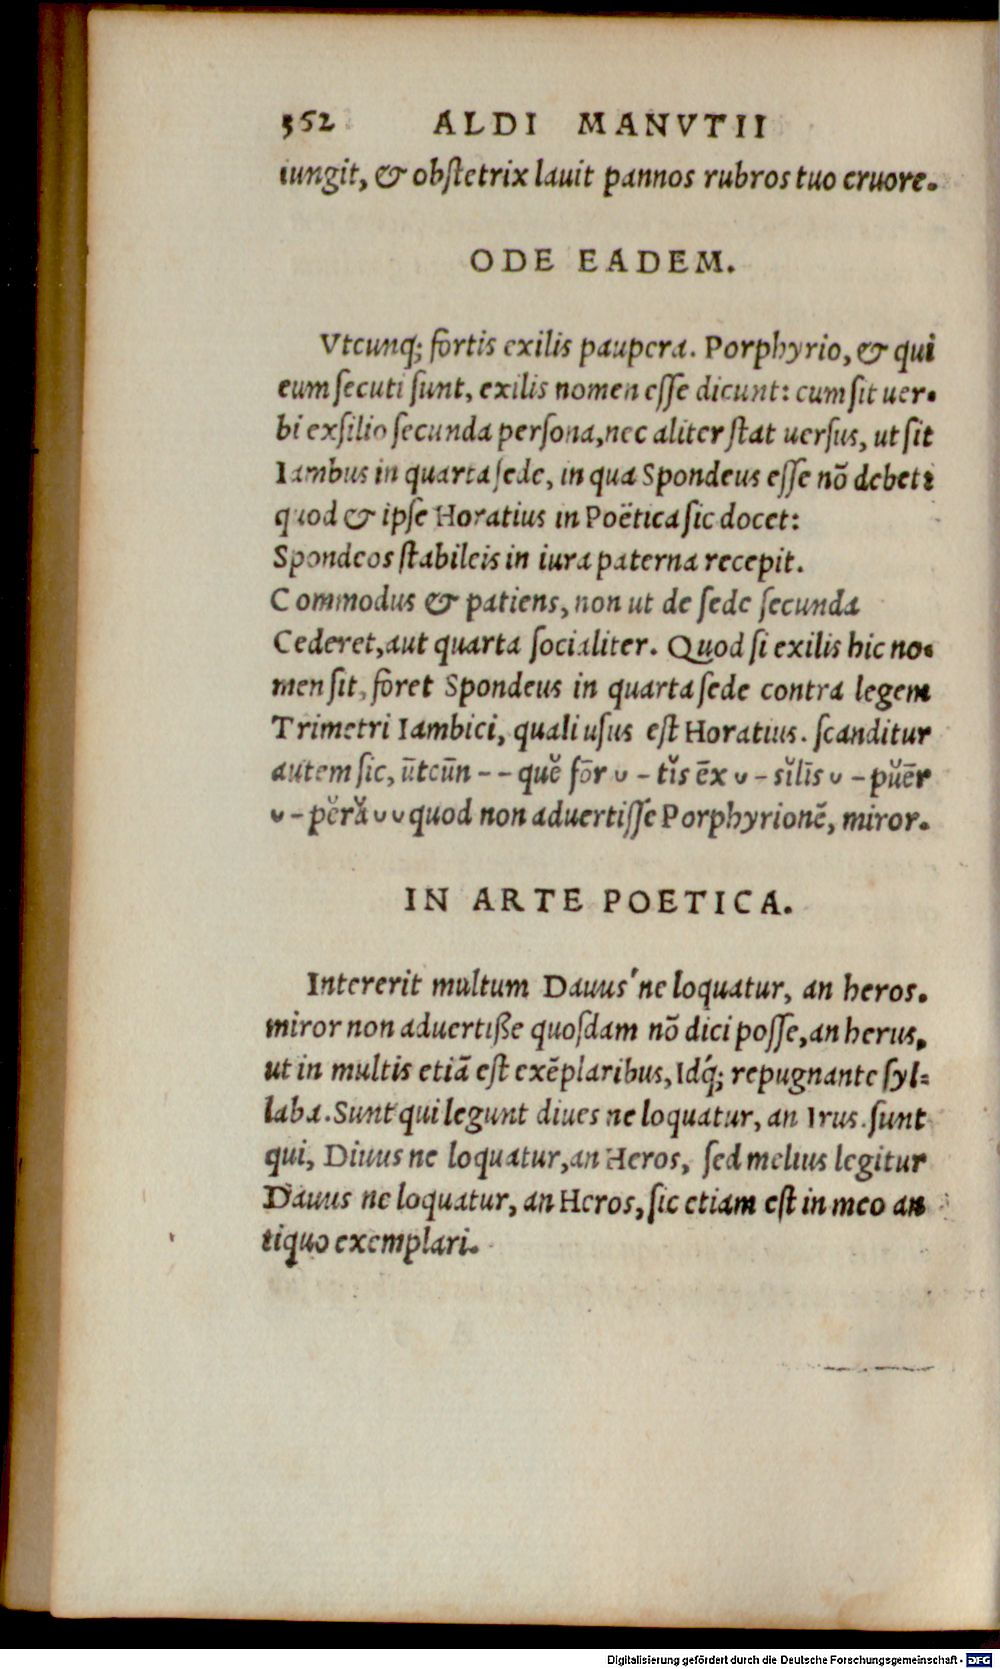 352 ALDI MANVTII
iungit, & obſtetrix lauit pannos rubros tuo cruore.
ODE EADEM.
Vtcunq; fortis exilis paupera. Porphyrio, & qui
eum ſecuti ſunt, exilis nomen eſſe dicunt: cum ſit uer-
bi exſilio ſecunda perſona, nec aliter ſtat uerſus, ut ſit
Iambus in quarta ſede, in qua Spondeus eſſe nõ debet:
quod & ipſe Horatius in Poëtica ſic docet:
Spondeos ſtabileis in iura paterna recepit.
Commodus & patiens, non ut de ſede ſecunda
Cederet, aut quarta ſocialiter. Quod ſi exilis hic no-
men ſit, foret Spondeus in quarta ſede contra legem
Trimetri Iambici, quali uſus eſt Horatius. ſcanditur
autem ſic, ūtcūn - - quĕ fōr ᴗ - tĭs ēx ᴗ - sĭlīs ᴗ - pŭēr
ᴗ - pĕră ᴗ ᴗ quod non aduertiſſe Porphyrionẽ, miror.
IN ARTE POETICA.
Intererit multum Dauus' ne loquatur, an heros.
miror non aduertiße quoſdam nõ dici poſſe, an herus,
ut in multis etiã eſt exẽplaribus, Idq́; repugnante ſyl-
laba. Sunt qui legunt diues ne loquatur, an Irus. ſunt
qui, Diuus ne loquatur, an Heros, ſed melius legitur
Dauus ne loquatur, an Heros, ſic etiam eſt in meo an
tiquo exemplari.
Digitalisierung gefördert durch die Deutsche Forschungsgemeinschaft - DFG